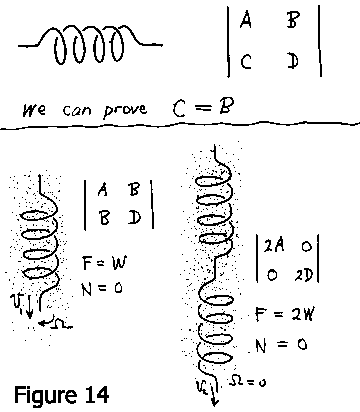 A B
C D
We can prove C = B
A B
B D
F = W
N = 0
V₁
Ω
2A 0
0 2D
F = 2W
N = 0
V₂ Ω = 0
Figure 14